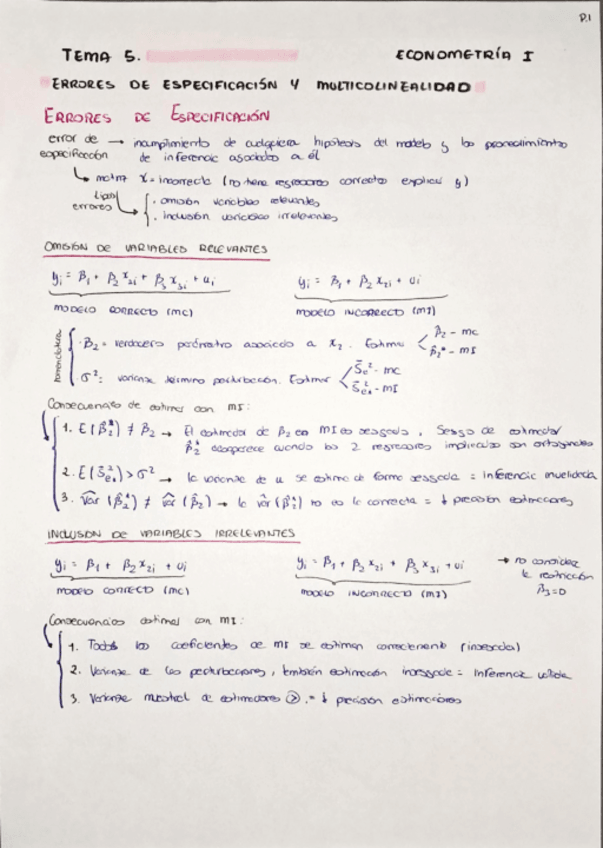 P.1
TEMA 5. ECONOMETRÍA I
ERRORES DE ESPECIFICACIÓN Y MULTICOLINEALIDAD
ERRORES DE ESPECIFICACIÓN
error de especificación → incumplimiento de cualquiera hipótesis del modelo y los procedimientos
de inferencia asociados a él
matriz X = incorrecta (no tiene regresores correctos explicar y)
errores { · omisión variables relevantes
· inclusión variables irrelevantes
OMISIÓN DE VARIABLES RELEVANTES
yi = β1 + β2 x2i + β3 x3i + ui yi = β1 + β2 x2i + ui
MODELO CORRECTO (MC) MODELO INCORRECTO (MI)
nomenclatura { · β2 = verdadero parámetro asociado a x2. Estimar < β̂2 - MC
β̂2* - MI
· σ²: varianza término perturbación. Estimar < S̄e² - MC
S̄e*² - MI
Consecuencias de estimar con MI:
1. E(β̂2*) ≠ β2 → El estimador de β2 en MI es sesgado. Sesgo de estimador
β̂2* desaparece cuando los 2 regresores implicados son ortogonales
2. E(S̄e*²) > σ² → la varianza de u se estima de forma sesgada = inferencia inválida
3. Var̂ (β̂2*) ≠ Var̂ (β̂2) → la Var̂ (β̂2*) no es la correcta = ↓ precisión estimadores
INCLUSIÓN DE VARIABLES IRRELEVANTES
yi = β1 + β2 x2i + ui yi = β1 + β2 x2i + β3 x3i + ui → no considera
la restricción
β3 = 0
MODELO CORRECTO (MC) MODELO INCORRECTO (MI)
Consecuencias estimar con MI:
1. Todos los coeficientes de MI se estiman correctamente (insesgados)
2. Varianza de las perturbaciones, también estimación insesgada = Inferencia válida
3. Varianza muestral de estimadores >, = ↓ precisión estimadores